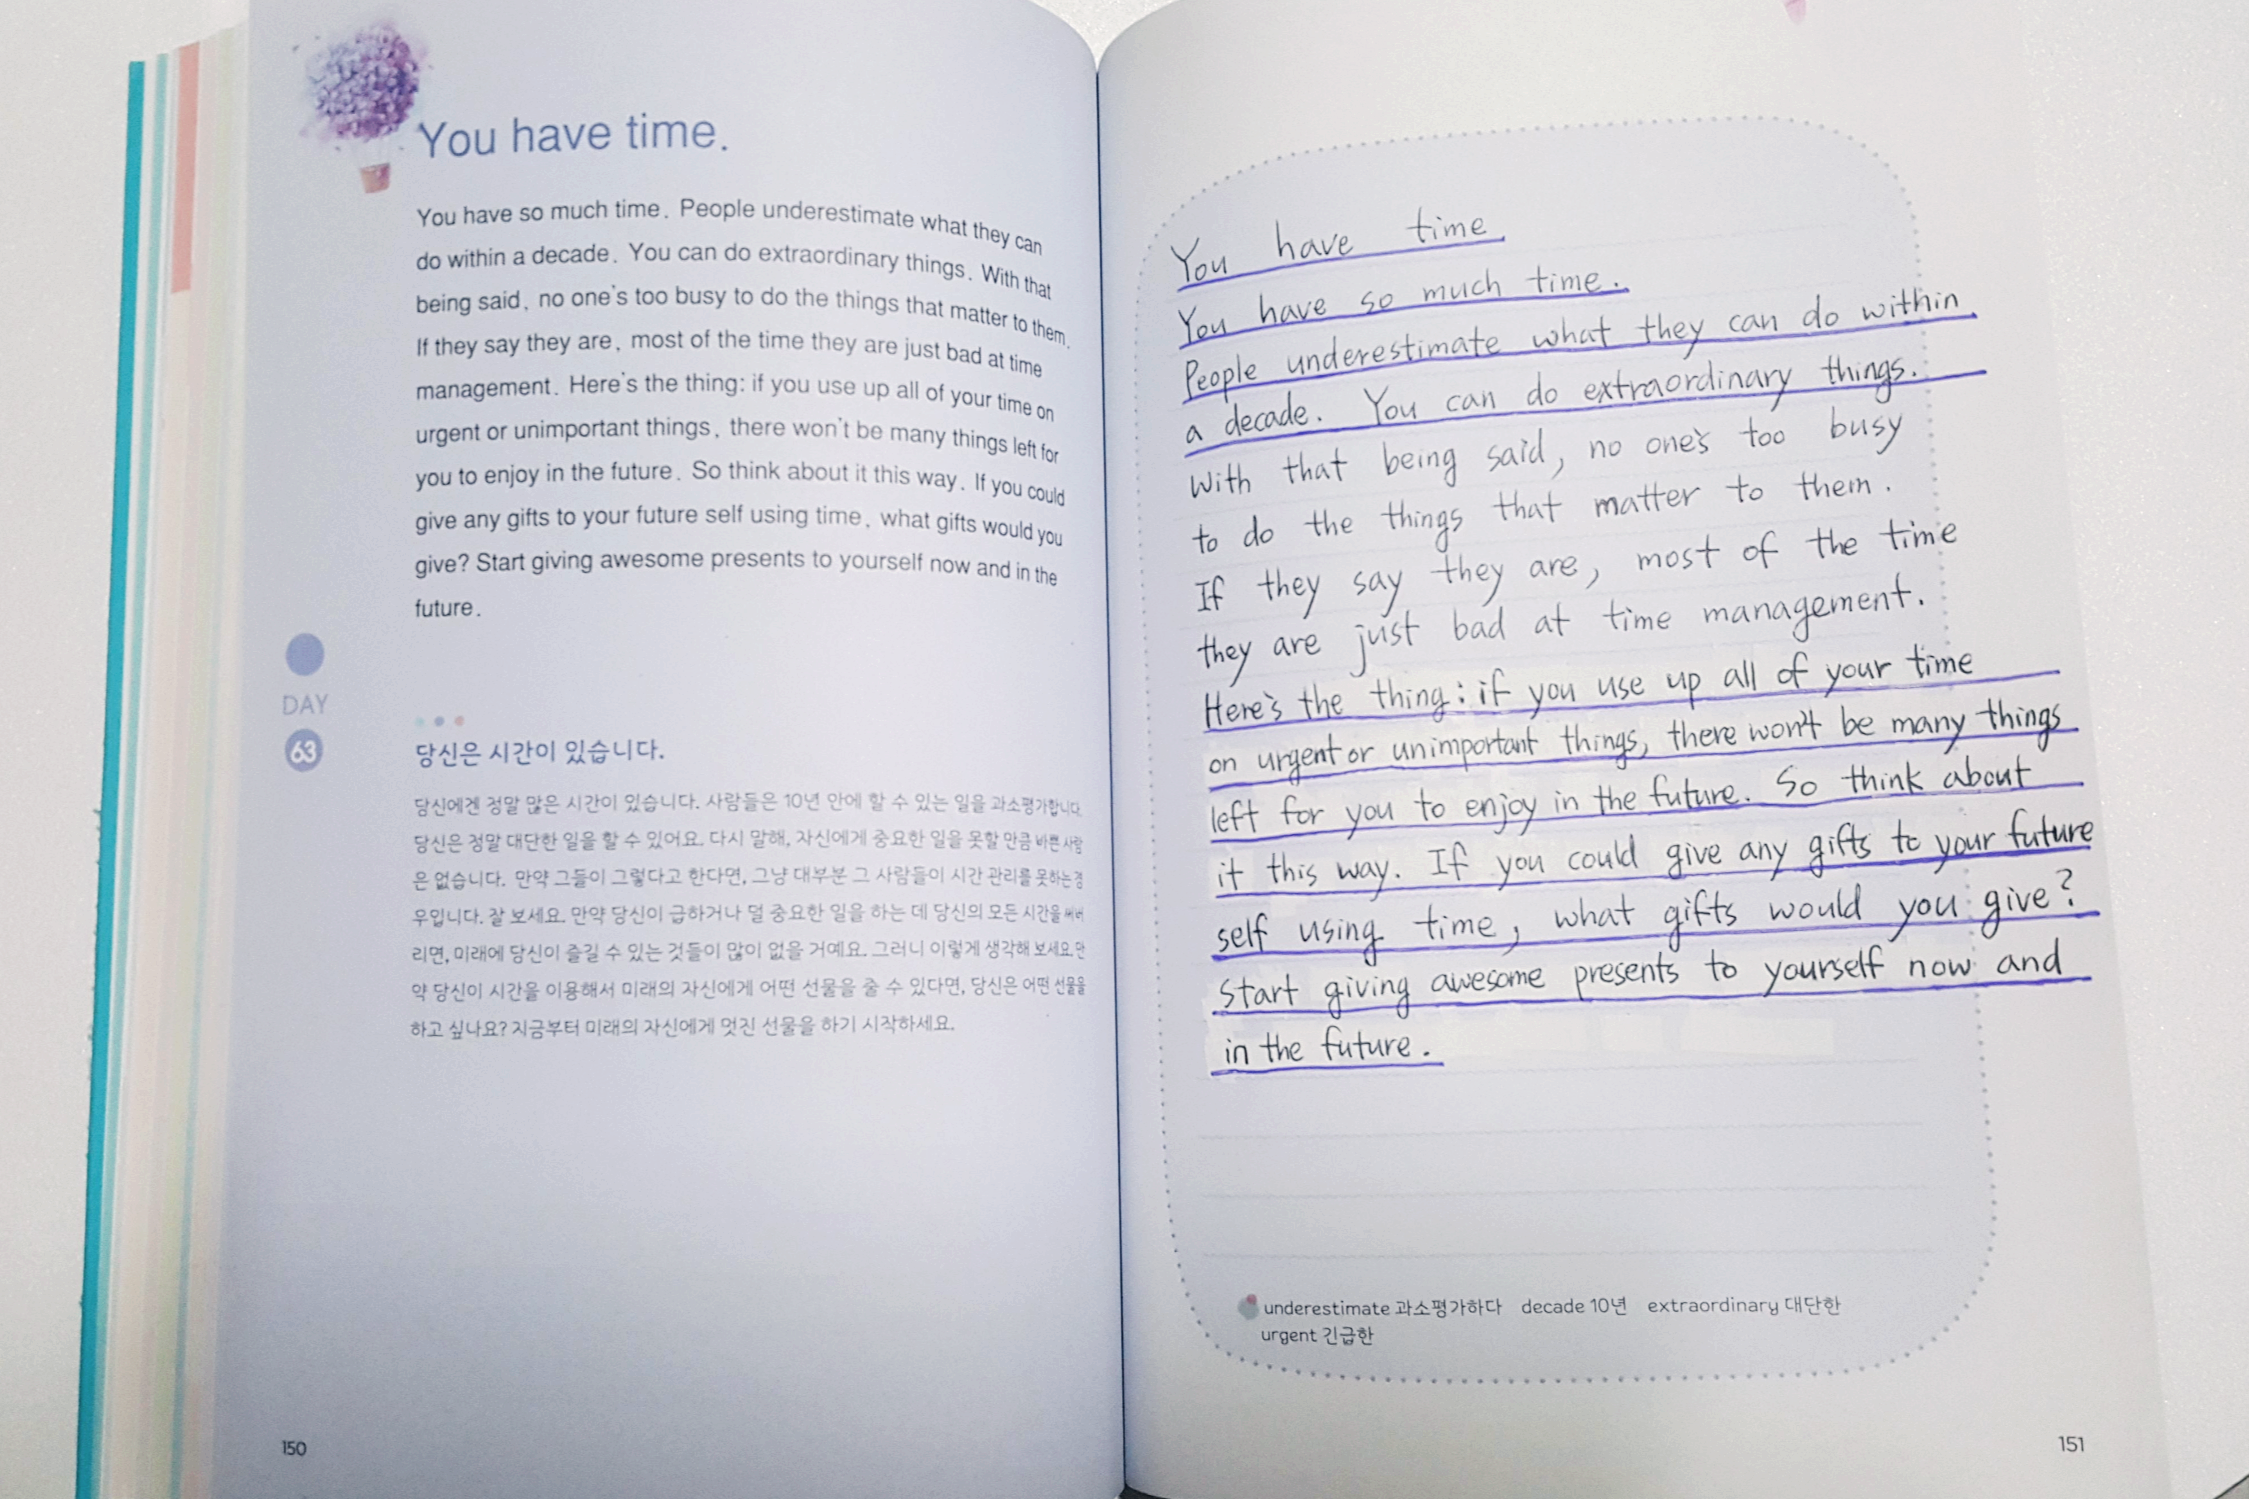 You have time.
You have so much time. People underestimate what they can
do within a decade. You can do extraordinary things. With that
being said, no one's too busy to do the things that matter to them.
If they say they are, most of the time they are just bad at time
management. Here's the thing: if you use up all of your time on
urgent or unimportant things, there won't be many things left for
you to enjoy in the future. So think about it this way. If you could
give any gifts to your future self using time, what gifts would you
give? Start giving awesome presents to yourself now and in the
future.
DAY
63
당신은 시간이 있습니다.
당신에겐 정말 많은 시간이 있습니다. 사람들은 10년 안에 할 수 있는 일을 과소평가합니다.
당신은 정말 대단한 일을 할 수 있어요. 다시 말해, 자신에게 중요한 일을 못할 만큼 바쁜 사람
은 없습니다. 만약 그들이 그렇다고 한다면, 그냥 대부분 그 사람들이 시간 관리를 못하는 경
우입니다. 잘 보세요. 만약 당신이 급하거나 덜 중요한 일을 하는 데 당신의 모든 시간을 써버
리면, 미래에 당신이 즐길 수 있는 것들이 많이 없을 거예요. 그러니 이렇게 생각해 보세요. 만
약 당신이 시간을 이용해서 미래의 자신에게 어떤 선물을 줄 수 있다면, 당신은 어떤 선물을
하고 싶나요? 지금부터 미래의 자신에게 멋진 선물을 하기 시작하세요.
150
You have time
You have so much time.
People underestimate what they can do within
a decade. You can do extraordinary things.
With that being said, no one's too busy
to do the things that matter to them.
If they say they are, most of the time
they are just bad at time management.
Here's the thing: if you use up all of your time
on urgent or unimportant things, there won't be many things
left for you to enjoy in the future. So think about
it this way. If you could give any gifts to your future
self using time, what gifts would you give?
Start giving awesome presents to yourself now and
in the future.
underestimate 과소평가하다 decade 10년 extraordinary 대단한
urgent 긴급한
151